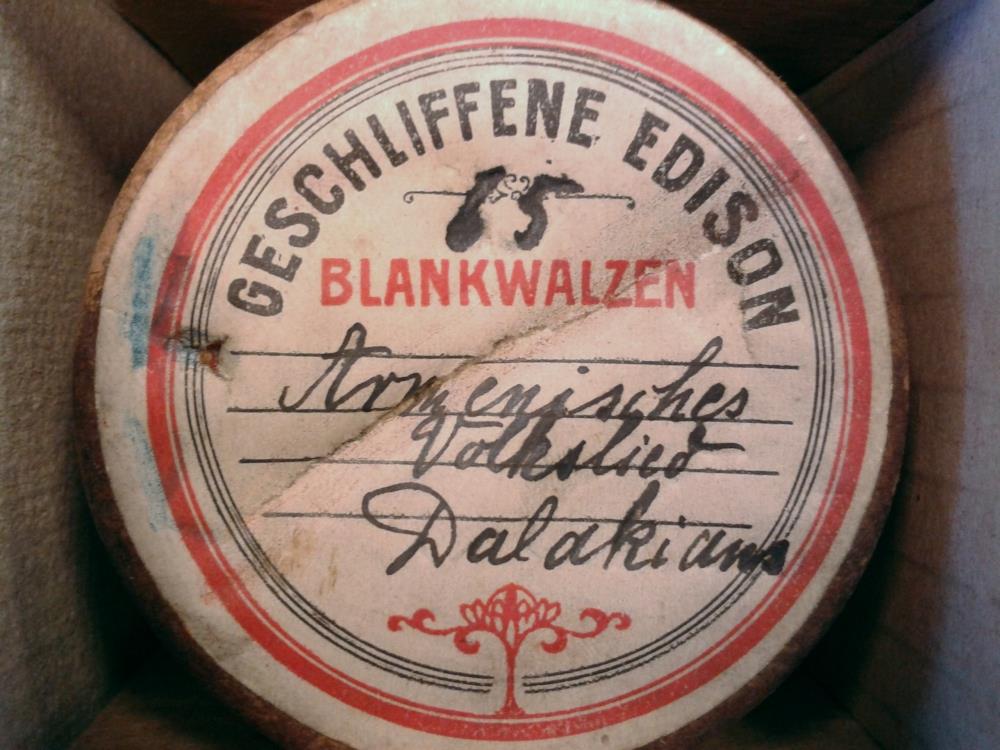 GESCHLIFFENE EDISON
15
BLANKWALZEN
Armenisches
Volkslied
Dalakians